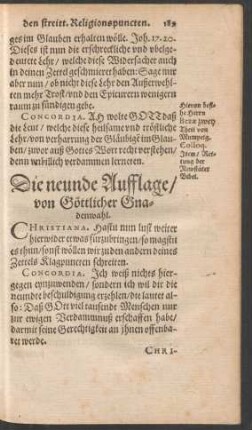 den streitt. Religionspuncten. 189
ges im Glauben erhalten wölle. Joh. 17.20.
Dieses ist nun die erschreckliche vnd vbelge-
deutete Lehr/ welche diese Widersacher auch
in deinen Zettel geschmieret haben: Sage mir
aber nun/ ob nicht diese Lehr den Außerwehl-
ten mehr Trost/ vnd den Epicurern wenigern
raum zu sündigen gebe.
CONCORDIA. Ah wolte GOTT daß
die Leut/ welche diese heilsame vnd tröstliche
Lehr/ von verharrung der Gläubigē im Glau-
ben/ zwor auß Gottes Wort recht verstehen/
denn vnbillich verdammen lerneten.
Hieruon bese-
he Herrn
Bezæ zwey
Theil von
Mümpelg.
Colloq.
Item/ Ret-
tung der
Newstäter
Bibel.
Die neunde Aufflage/
von Göttlicher Gna-
denwahl.
CHRISTIANA. Hastu nun lust weiter
hierwider etwas fürzubringen/ so magstu
es thun/ sonst wöllen wir zu den andern deines
Zettels Klagpuncten schreiten.
CONCORDIA. Ich weiß nichts hier-
gegen eynzuwenden/ sondern ich wil dir die
neundte beschuldigung erzehlen/ die lautet al-
so: Daß GOtt viel tausendt Menschen nur
zur ewigen Verdammnuß erschaffen habe/
darmit seine Gerechtigkeit an jhnen offenba-
ret werde.
CHRI-